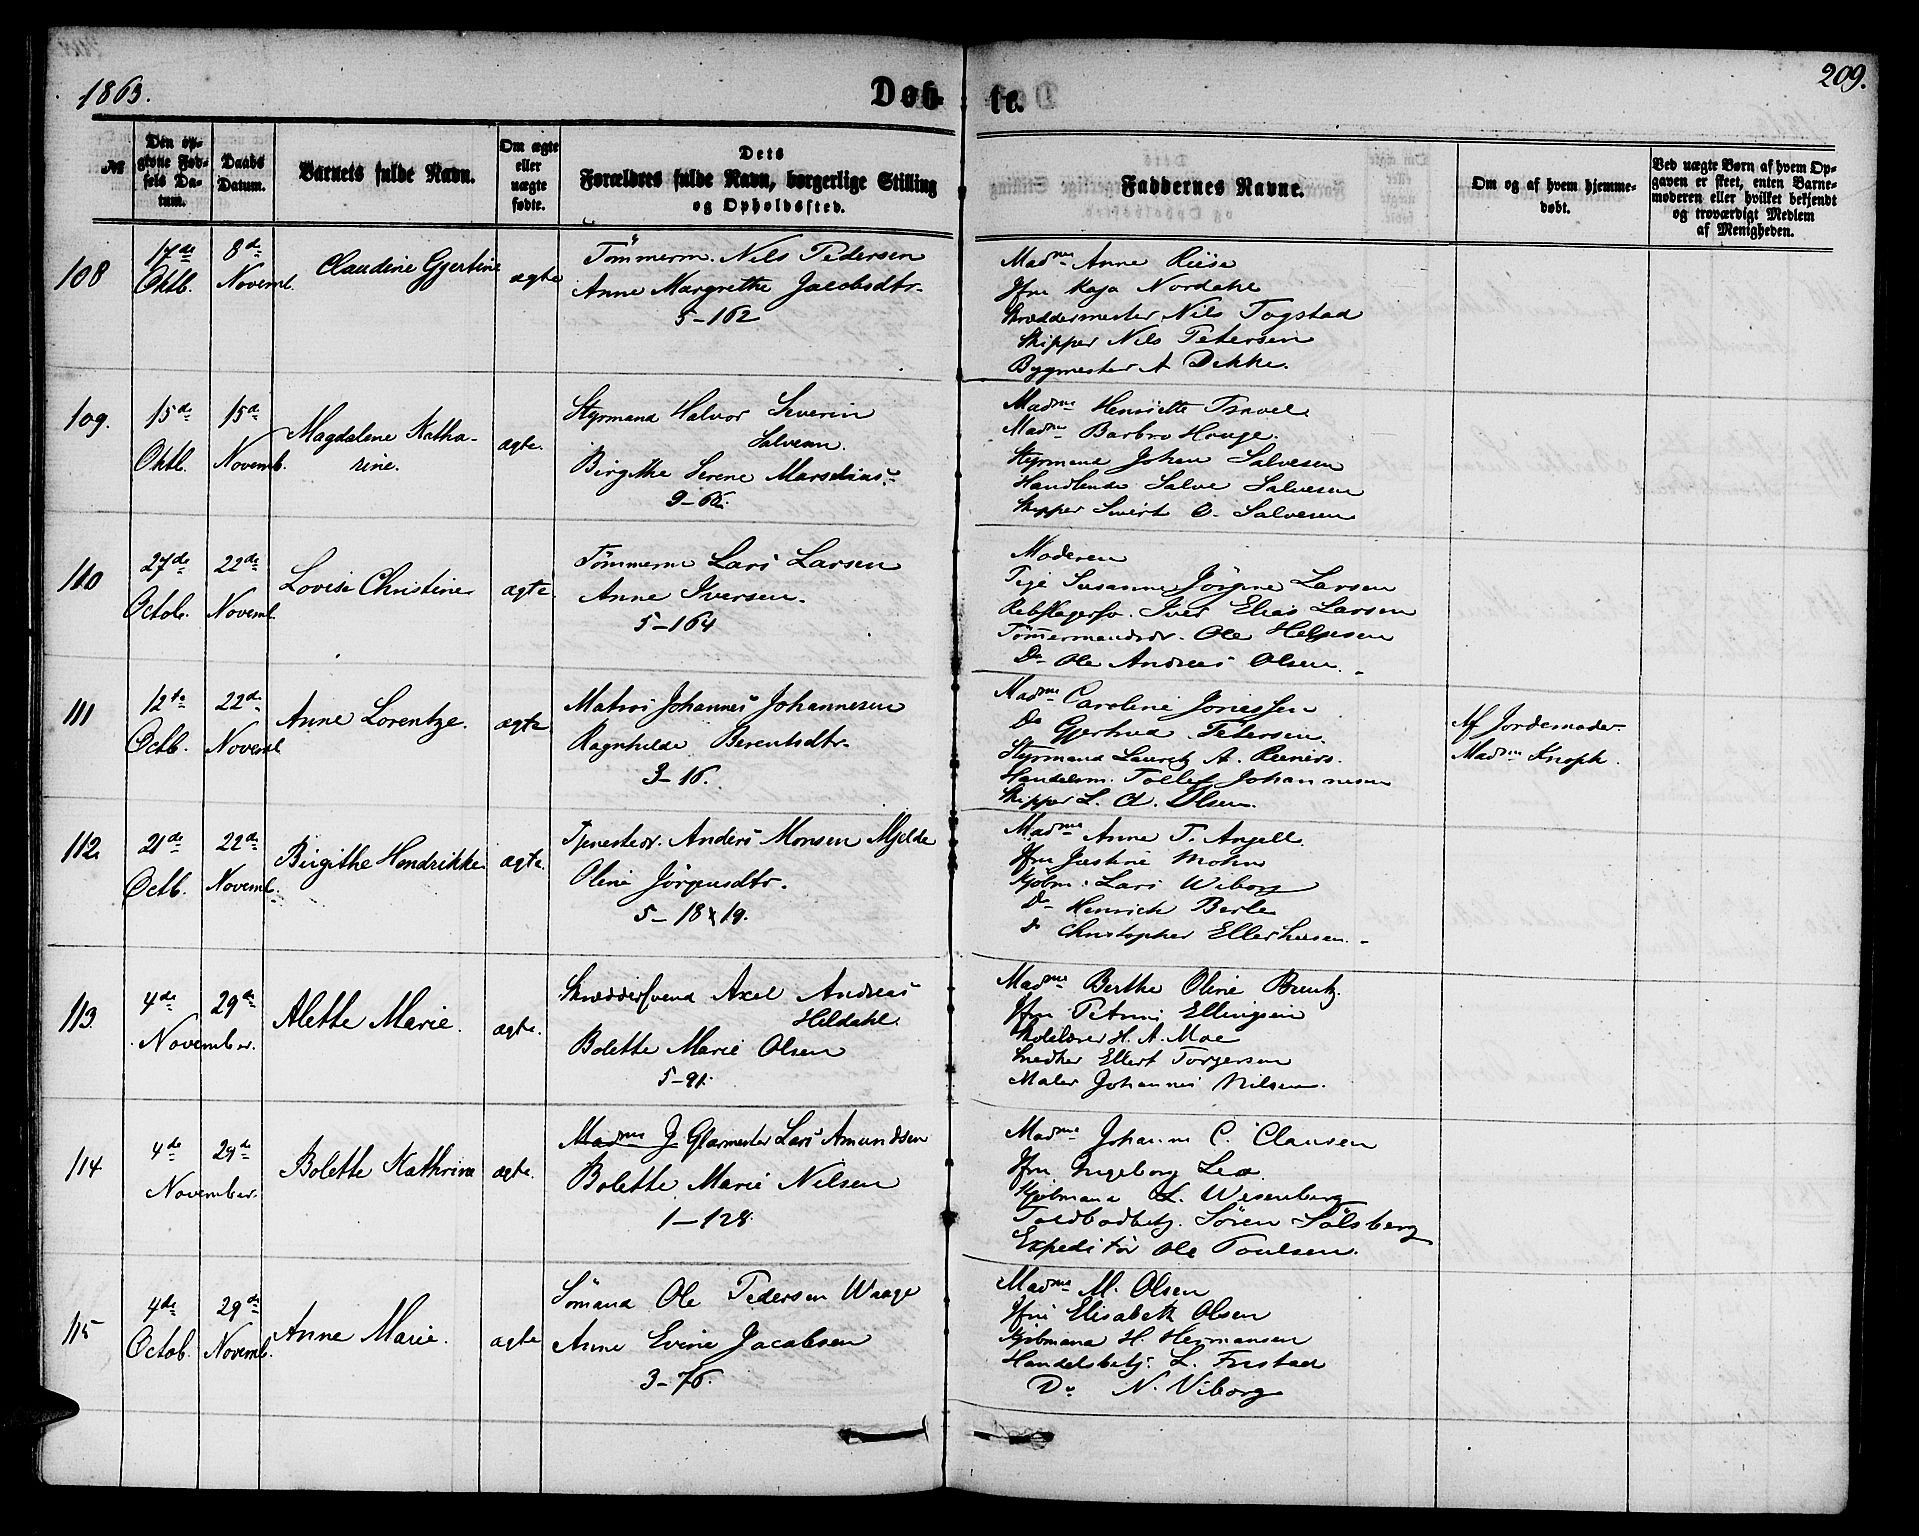 1863.
Døb-
te.
209.
№
Den op-
givne Fød-
sels Da-
tum.
Daabs
Datum.
Barnets fulde Navn.
Om ægte
eller
uægte
fødte.
Dets
Forældres fulde Navn, borgerlige Stilling
og Opholdssted.
Faddernes Navne.
Om og af hvem hjemme-
døbt.
Ved uægte Børn af hvem Op-
gaven er skeet, enten Barne-
moderen eller hvilket bekjendt
og troværdigt Medlem
af Menigheden.
108
17de
Oktb.
8de
Novemb.
Claudine Gjertine
ægte
Tømmerm. Nils Pedersen
Anne Margrethe Jacobsdtr.
5-162
Madme Anne Riise
Jfru Kaja Nordahl
Skræddermester Nils Togstad
Skipper Nils Petersen
Bygmester A Dekke.
109.
15de
Oktb.
15de
Novemb.
Magdalene Katha-
rine.
ægte.
Styrmand Halvor Severin
Salvesen.
Birgithe Serene Marselius.
9-66.
Madme Henriette Israel.
Madme Barbro Houge.
Styrmand Johan Salvesen
Handlende Salve Salvesen
Skipper Sivert O. Salvesen
110
27de
Octob.
22de
Novemb.
Lovise Christine
ægte.
Tømmerm Lars Larsen
Anne Iversen.
5-164
Moderen
Pige Susanne Jørgine Larsen
Rebslagersv. Iver Elias Larsen
Tømmermandsdr. Ole Helgesen
Do Ole Andreas Olsen.
111
12te
Octb.
22de
Novemb.
Anne Lorentze.
ægte
Matros Johannes Johannesen
Ragnhilde Berentsdtr.
3-16.
Madme Caroline Joniessen
Do Gjertrud Petersen.
Styrmand Lauritz A. Reiners.
Handelsm. Tollef Johannesen
Skipper L. A. Olsen.
Af Jordemoder
Madme Knoph.
112.
21de
Octb.
22de
Novemb.
Birgithe Hendrikke
ægte.
Tjenestedr. Anders Monsen Mjelde
Oline Jörgensdtr.
5-18 & 19.
Madme Anne T. Angell.
Jfru Justine Mohn
Kjøbm: Lars Wiborg
Do Henrich Berle
do Christopher Ellerhusen.
113.
4de
November.
29de
Alette Marie.
ægte.
Skræddersvend Axel Andreas
Heldahl.
Bolette Marie Olsen
5-91.
Madme Berthe Oline Bruntz.
Jfru Petrine Ellingsen
Skolelærer H. A. Moe
Snedker Ellert Torgersen
Maler Johannes Nilsen.
114
4de
November.
29de
Bolette Kathrina
ægte.
Madme J. Glarmester Lars Amundsen
Bolette Marie Nilsen
1-128.
Madme Johanne C. Clausen
Jfru Ingeborg Lea.
Kjøbmand L. Wesenberg
Toldbodbetj. Sören Sölsberg
Expeditör Ole Poulsen.
115
4de
Octob.
29de
Novemb.
Anne Marie.
ægte
Sömand Ole Pedersen Waage
Anne Evine Jacobsen
3-76.
Madme M. Olsen
Jfru Elisabeth Olsen
Kjøbmand H. Hermansen
Handelsbetj. L. Fristad
Do N. Viborg